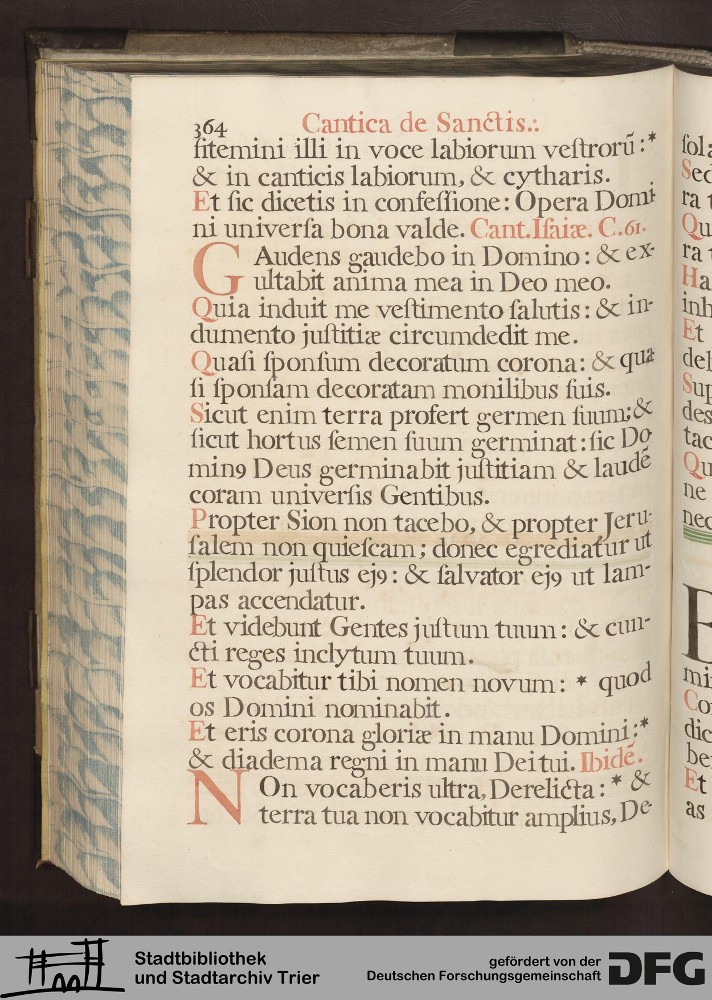 364 Cantica de Sanctis.:
fitemini illi in voce labiorum veſtrorũ :*
& in canticis labiorum, & cytharis.
Et ſic dicetis in confeſſione: Opera Domi-
ni univerſa bona valde. Cant.Iſaiæ. C.61.
GAudens gaudebo in Domino: & ex-
ultabit anima mea in Deo meo.
Quia induit me veſtimento ſalutis: & in-
dumento juſtitiæ circumdedit me.
Quaſi ſponſum decoratum corona: & qua
ſi ſponſam decoratam monilibus ſuis.
Sicut enim terra profert germen ſuum: &
ſicut hortus ſemen ſuum germinat: ſic Do
min9 Deus germinabit juſtitiam & laudẽ
coram univerſis Gentibus.
Propter Sion non tacebo, & propter Jeru-
ſalem non quieſcam; donec egrediatur ut
ſplendor juſtus ej9: & ſalvator ej9 ut lam-
pas accendatur.
Et videbunt Gentes juſtum tuum: & cun-
cti reges inclytum tuum.
Et vocabitur tibi nomen novum: * quod
os Domini nominabit.
Et eris corona gloriæ in manu Domini:*
& diadema regni in manu Dei tui. Ibidẽ.
NOn vocaberis ultra, Derelicta: * &
terra tua non vocabitur amplius, De-
Stadtbibliothek
und Stadtarchiv Trier
gefördert von der
Deutschen Forschungsgemeinschaft
DFG